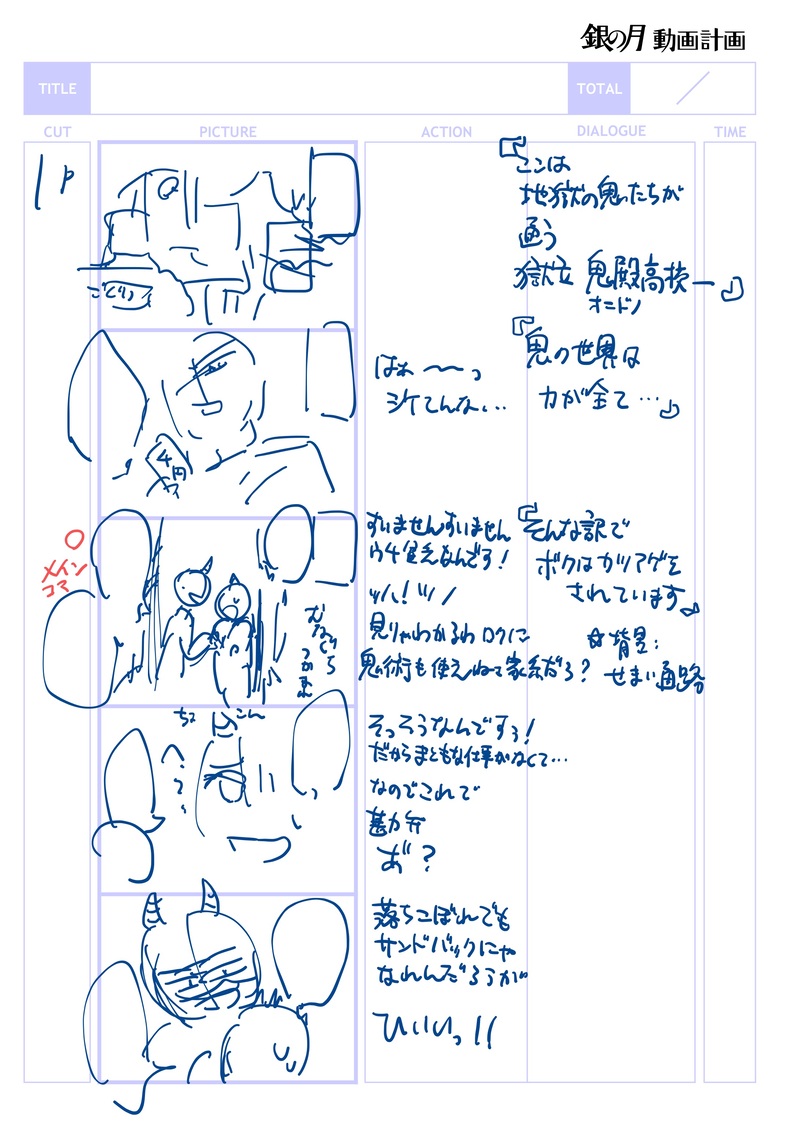 銀の月 動画計画
TITLE
TOTAL
CUT
PICTURE
ACTION
DIALOGUE
TIME
1P
『ここは
地獄の鬼たちが
通う
獄立 鬼殿高校ー』
オニドノ
はぁ〜〜っ
シケてんな…
『鬼の世界は
力が全て…』
4円
○
メイン
コマ
むなぐら
つかまれ
すいませんすいません
ウチ貧乏なんです!
見りゃわかるわ ロクに
鬼術も使えねェ家系だろ?
『そんな訳で
ボクはカツアゲを
されています』
✿背景:
せまい通路
ちょこん
へ
そっそうなんですぅ!
だからまともな仕事がなくて…
なのでこれで
勘弁
あ゛?
落ちこぼれでも
サンドバックにゃ
なれんだろうが
ひいいっ!!